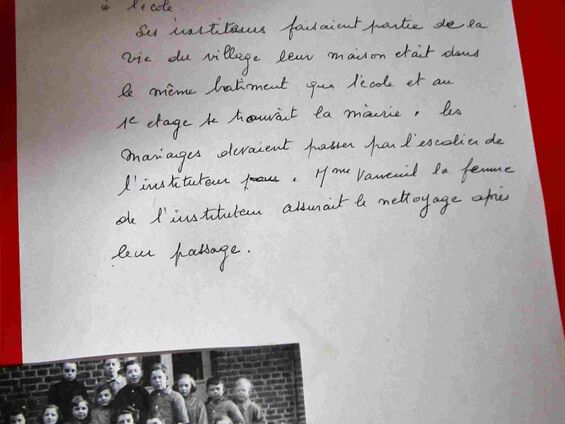 à l'école.
Les instituteurs faisaient partie de la
vie du village leur maison était dans
le même batiment que l'école et au
1e etage se trouvait la mairie. les
mariages devaient passer par l'escalier de
l'instituteur pour. Mme Vanneuil la femme
de l'instituteur assurait le nettoyage après
leur passage.